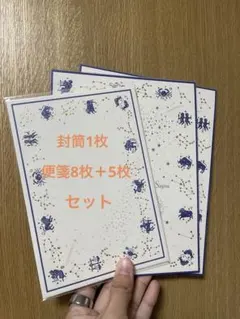 封筒1枚
便箋8枚＋5枚
セット